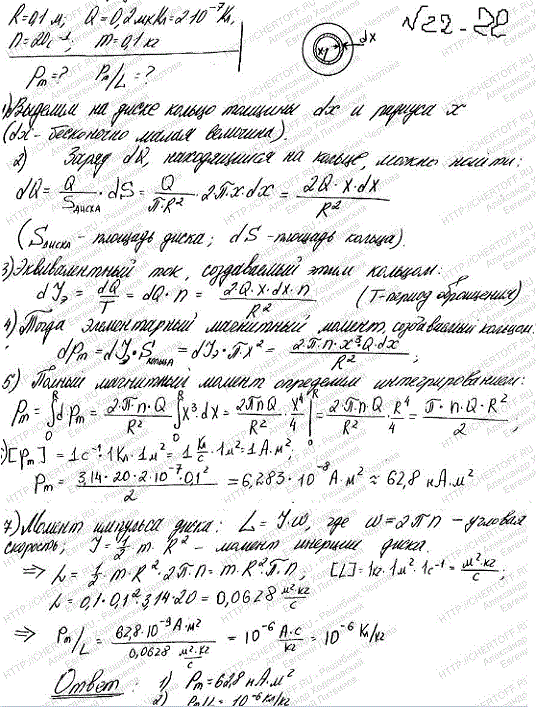 R=0,1 м; Q=0,2 мкКл=2·10⁻⁷ Кл,
n=20 с⁻¹; m=0,1 кг
№22-20
dx
x
Pm=? Pm/L=?
1) Выделим на диске кольцо толщины dx и радиуса x
(dx - бесконечно малая величина).
2) Заряд dQ, находящийся на кольце, можно найти:
dQ = Q/Sдиска · dS = Q/(π·R²) · 2πx dx = 2Q·x·dx/R²
(Sдиска - площадь диска; dS - площадь кольца).
3) Эквивалентный ток, создаваемый этим кольцом:
dJэ = dQ/T = dQ·n = 2Q·x·dx·n/R² (T-период обращения)
4) Тогда элементарный магнитный момент, создаваемый кольцом:
dPm = dJэ·Sкольца = dJэ·πx² = 2π·n·x³Q·dx/R²;
5) Полный магнитный момент определим интегрированием:
Pm = ∫₀ᴿ dPm = 2π·n·Q/R² ∫₀ᴿ x³dx = 2πnQ/R² · x⁴/4 |₀ᴿ = 2π·n·Q/R² · R⁴/4 = π·n·Q·R²/2;
[Pm] = 1с⁻¹·1Кл·1м² = 1 Кл/с·1м² = 1А·м²;
Pm = 3,14·20·2·10⁻⁷·0,1²/2 = 6,283·10⁻⁸ А·м² ≈ 62,8 нА·м²
7) Момент импульса диска: L = J·ω, где ω=2πn - угловая
скорость; J = 1/2 m·R² - момент инерции диска.
⇒ L = 1/2·m·R²·2π·n = m·R²·π·n, [L]=1кг·1м²·1с⁻¹ = м²·кг/с;
L = 0,1·0,1²·3,14·20 = 0,0628 м²·кг/с
⇒ Pm/L = 62,8·10⁻⁹ А·м²/0,0628 м²·кг/с = 10⁻⁶ А·с/кг = 10⁻⁶ Кл/кг
Ответ: 1) Pm=62,8 нА·м²
2) Pm/L = 10⁻⁶ Кл/кг